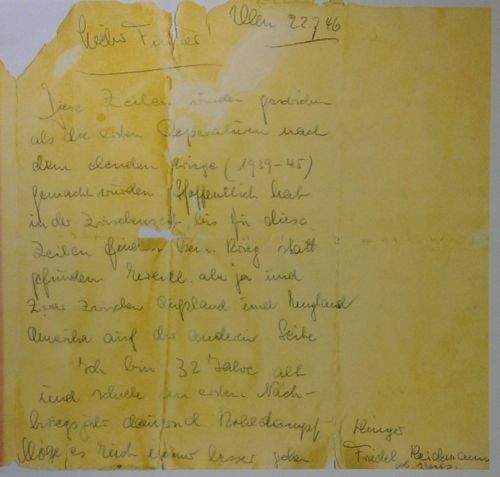 Ulm 22.7.46
Lieber Finder!
Diese Zeilen wurden geschrieben
als die ersten Reparaturen nach
dem elenden Kriege (1939-45)
gemacht wurden. Hoffentlich hat
in der Zwischenzeit bis Ihr diese
Zeilen findet kein Krieg statt
gefunden. Eventl. aber ja und
zwar zwischen Rußland und England
Amerika auf der anderen Seite
Ich bin 32 Jahre alt
und schiebe im ersten Nach-
kriegsjahr dauernd Kohldampf (Hunger
Möge es Euch immer besser gehen
Friedel Heidemann